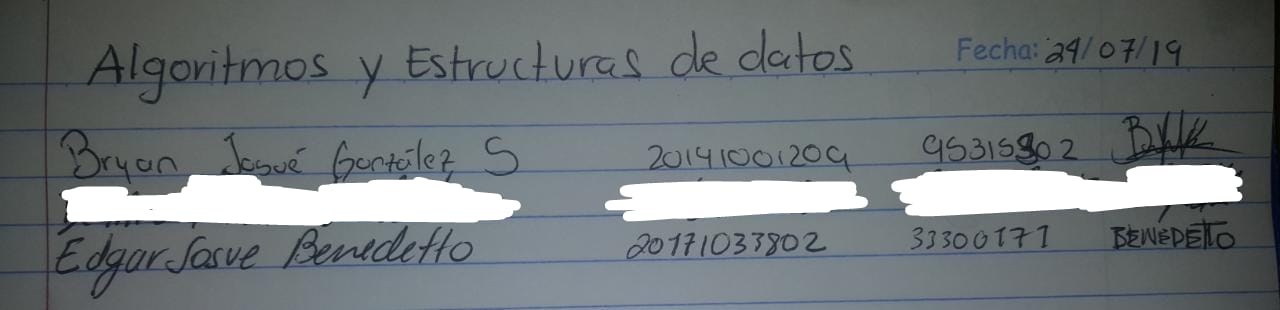 Algoritmos y Estructuras de datos Fecha: 29/07/19
Bryan Josué González S 20141001209 95315902
Edgar Josue Benedetto 20171033802 33300171 BENEDETTO